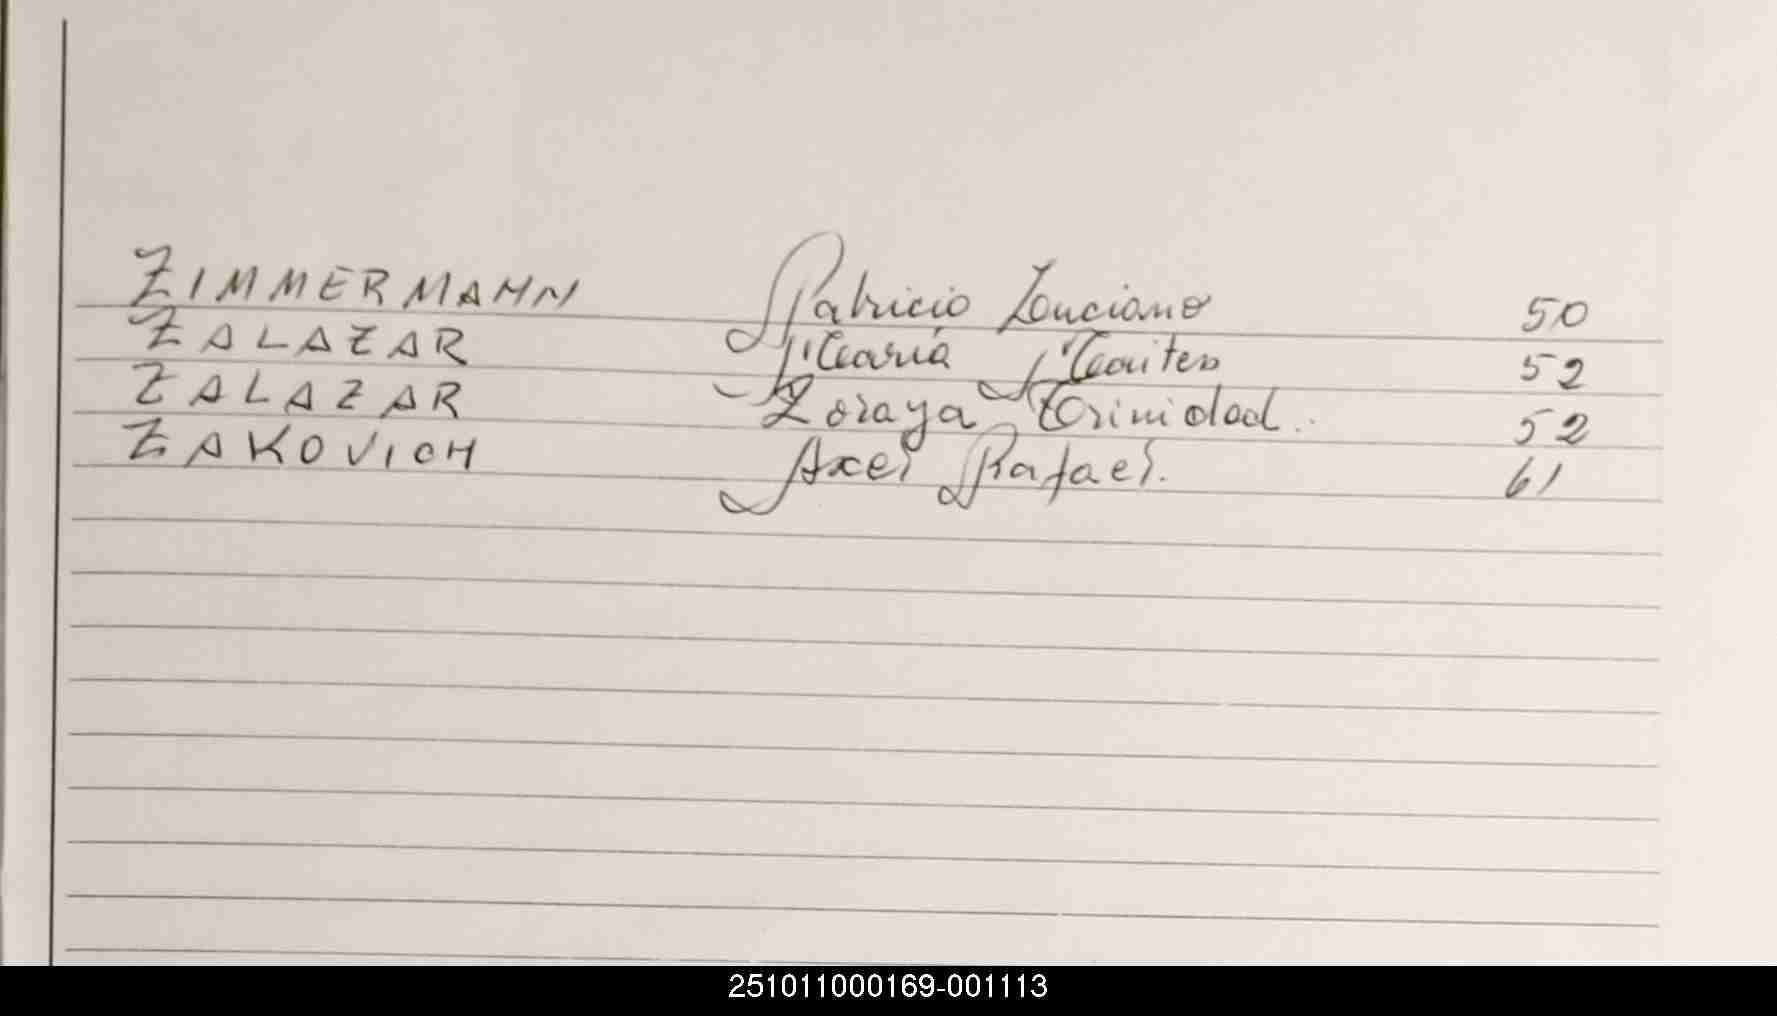 ZIMMERMANN Patricio Luciano 50
ZALAZAR María Maiten 52
ZALAZAR Zoraya Trinidad. 52
ZAKOVICH Axel Rafael. 61
251011000169-001113